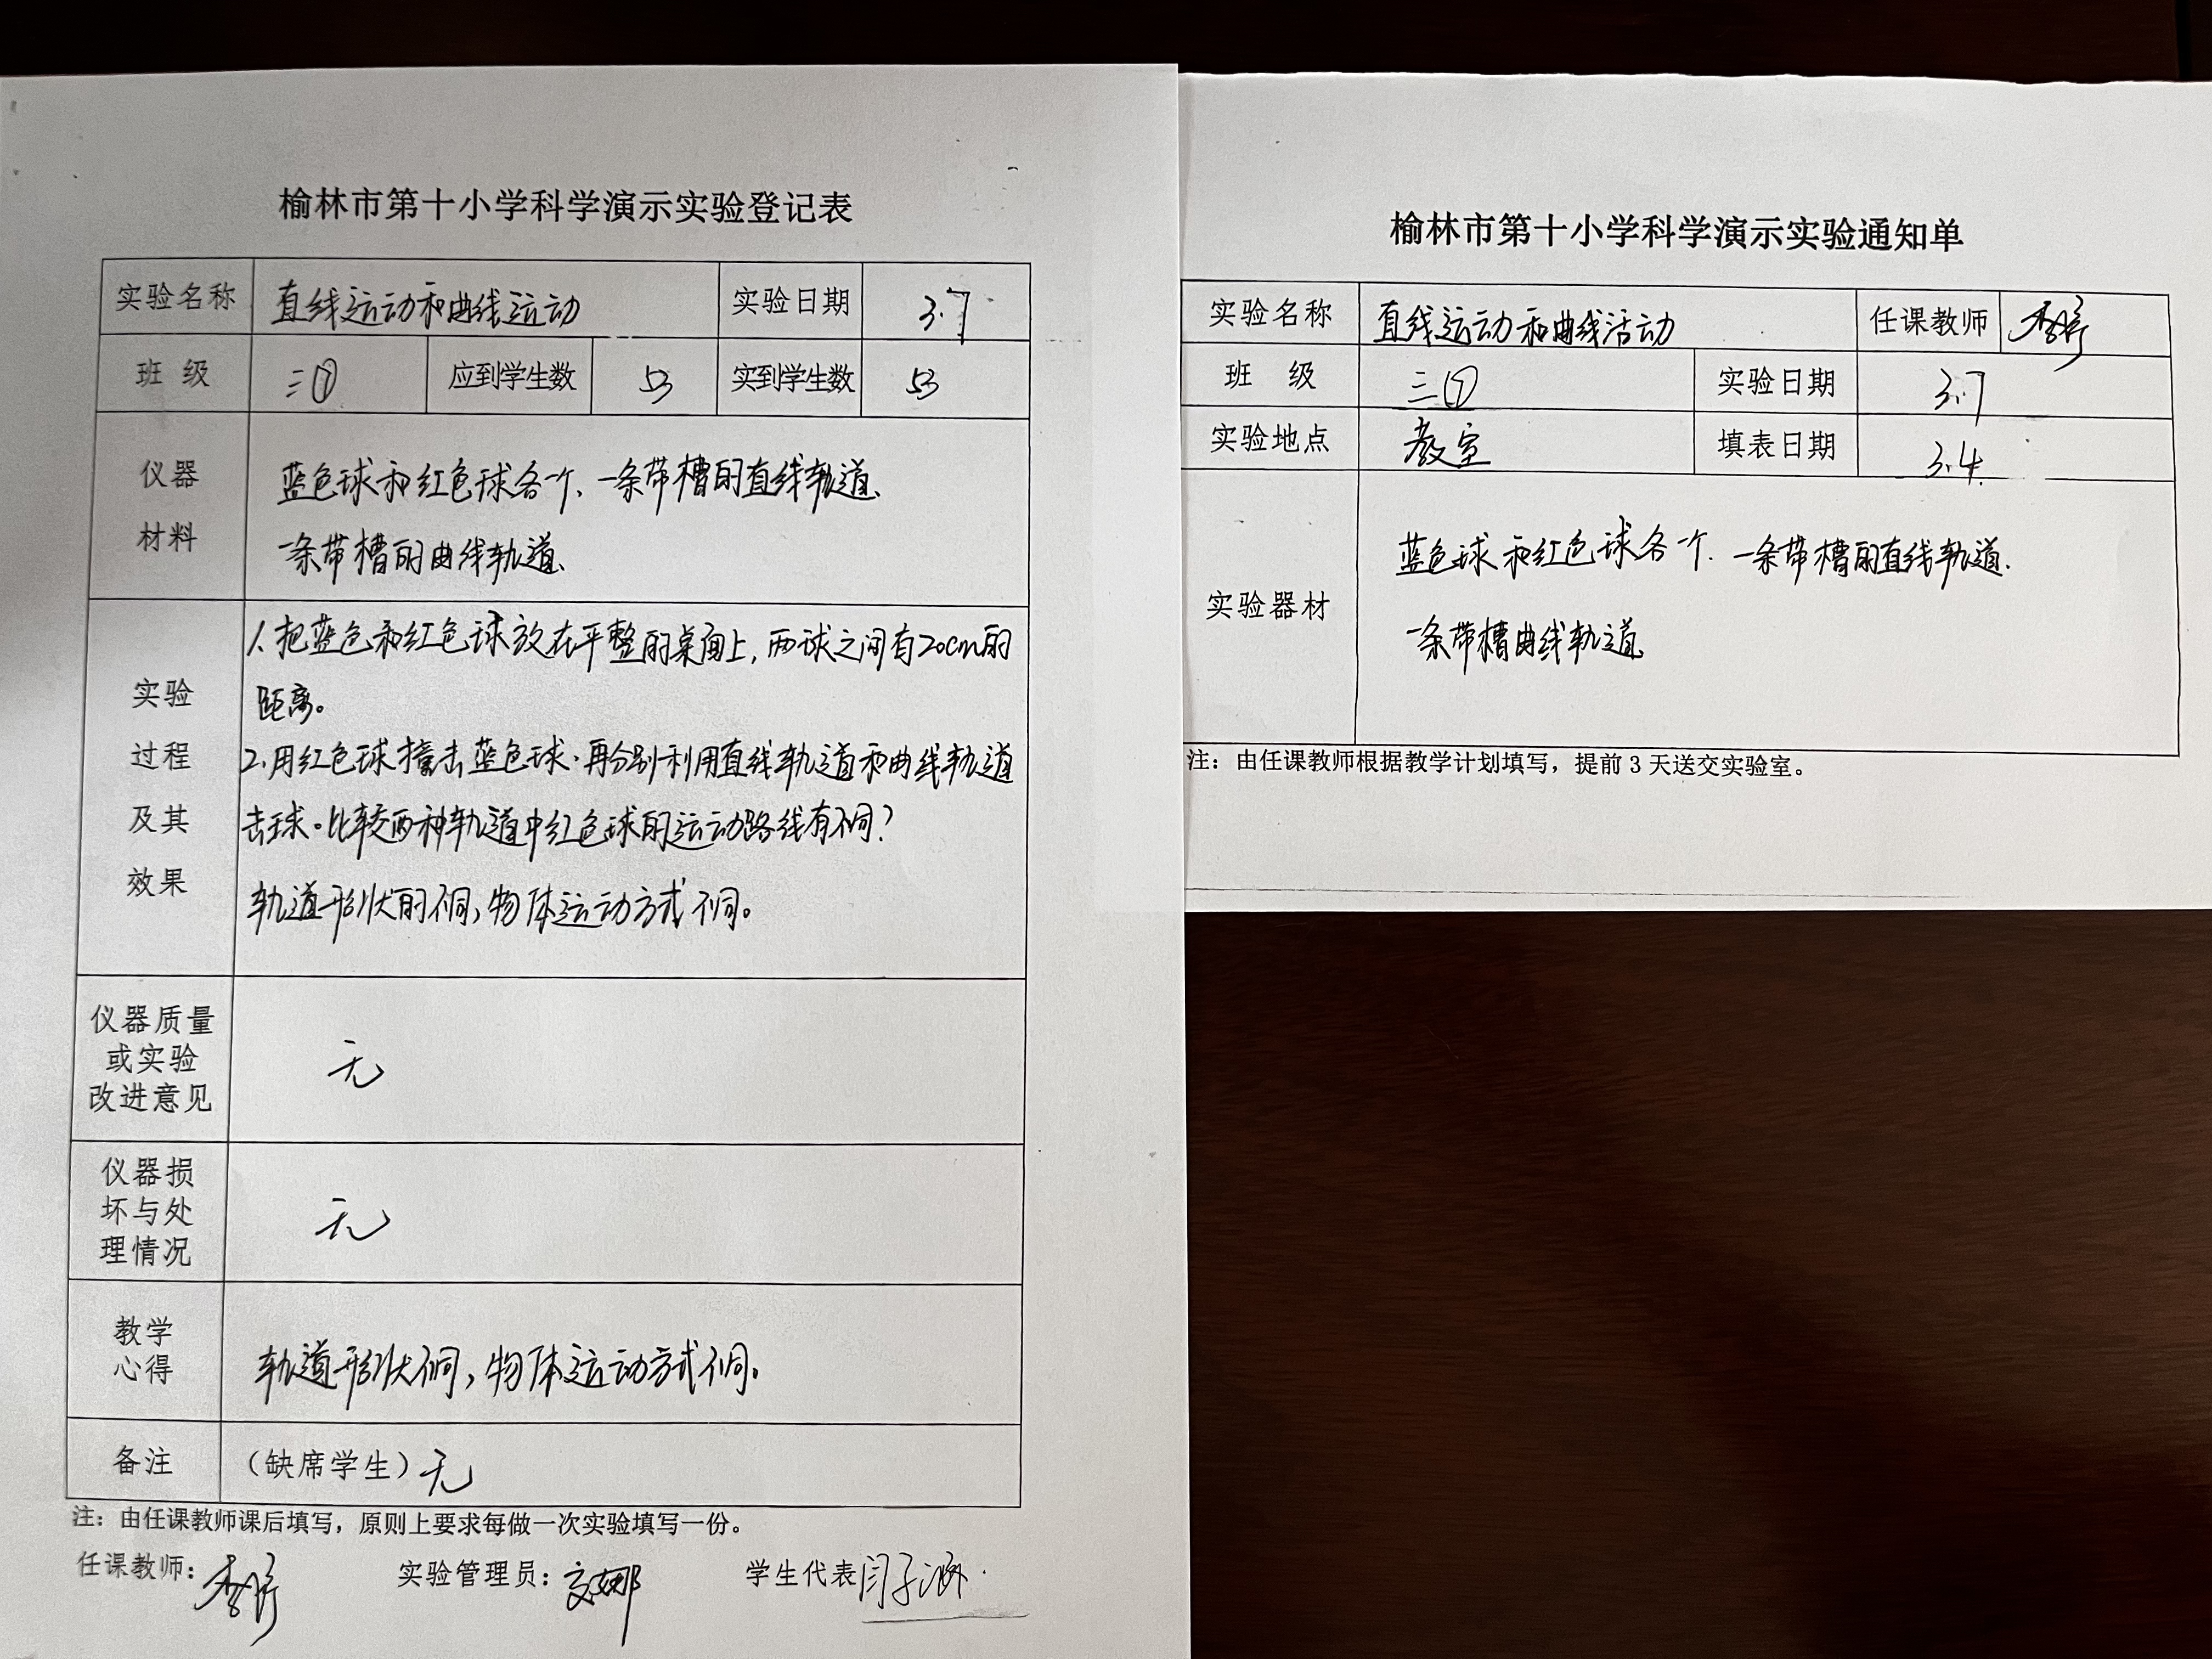 榆林市第十小学科学演示实验登记表
实验名称 直线运动和曲线运动 实验日期 3.7
班 级 三⑦ 应到学生数 53 实到学生数 53
仪器
材料
蓝色球和红色球各一个、一条带槽的直线轨道、
一条带槽的曲线轨道、
实验
过程
及其
效果
1、把蓝色和红色球放在平整的桌面上,两球之间有20cm的
距离。
2、用红色球撞击蓝色球.再分别利用直线轨道和曲线轨道
击球。比较两种轨道中红色球的运动路线有不同?
轨道形状的不同,物体运动方式不同。
仪器质量
或实验
改进意见
无
仪器损
坏与处
理情况
无
教学
心得
轨道形状不同,物体运动方式不同。
备注 (缺席学生)无
注:由任课教师课后填写,原则上要求每做一次实验填写一份。
任课教师: 实验管理员: 学生代表 闫子涵
榆林市第十小学科学演示实验通知单
实验名称 直线运动和曲线活动 任课教师
班 级 三⑦ 实验日期 3.7
实验地点 教室 填表日期 3.4.
实验器材
蓝色球和红色球各一个. 一条带槽的直线轨道.
一条带槽曲线轨道
注:由任课教师根据教学计划填写,提前3天送交实验室。